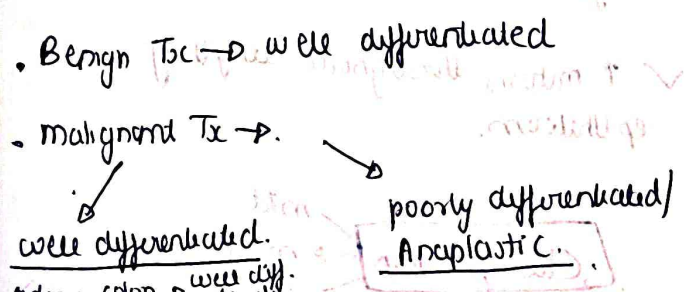 • Benign Tx → well differentiated
• malignant Tx →
well differentiated.
poorly differentiated/
Anaplastic.
colon well diff.